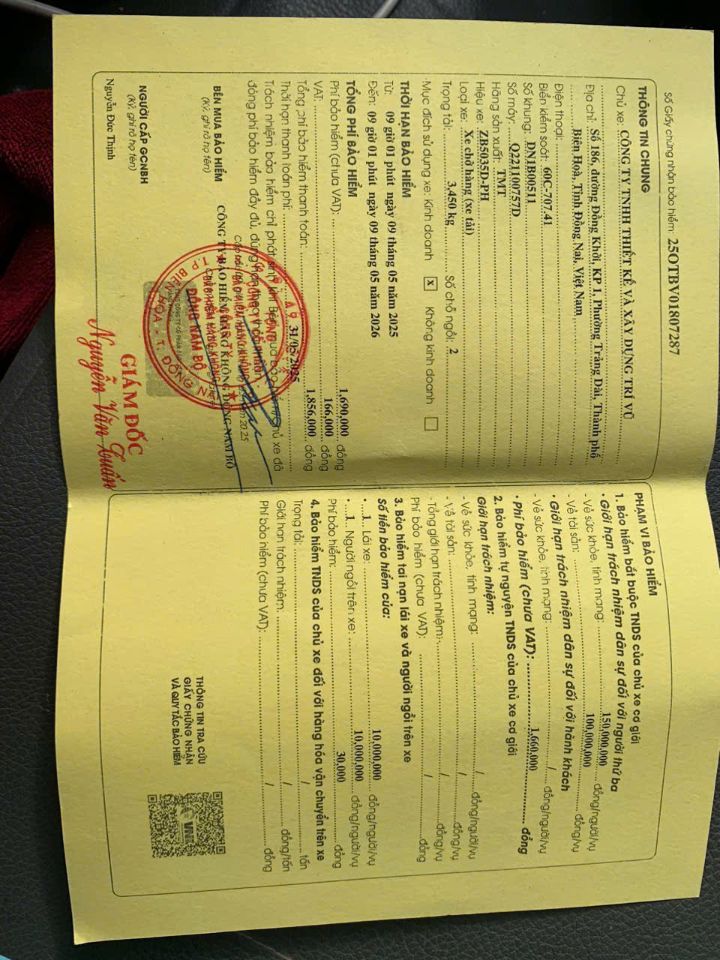 Số Giấy chứng nhận bảo hiểm: 25OTBV01807287
THÔNG TIN CHUNG
Chủ xe: CÔNG TY TNHH THIẾT KẾ VÀ XÂY DỰNG TRÍ VŨ
Địa chỉ: Số 186, đường Đồng Khởi, KP 1, Phường Trảng Dài, Thành phố
Biên Hoà, Tỉnh Đồng Nai, Việt Nam
Điện thoại:
Biển kiểm soát: 60C-707.41
Số khung: DN1B00511
Số máy: Q221100757D
Hãng sản xuất: TMT
Hiệu xe: ZB5035D-PH
Loại xe: Xe chở hàng (xe tải)
Trọng tải: 3,450 kg Số chỗ ngồi: 2
Mục đích sử dụng xe: Kinh doanh X Không kinh doanh
THỜI HẠN BẢO HIỂM
Từ: 09 giờ 01 phút ngày 09 tháng 05 năm 2025
Đến: 09 giờ 01 phút ngày 09 tháng 05 năm 2026
TỔNG PHÍ BẢO HIỂM
Phí bảo hiểm (chưa VAT): 1,690,000 đồng
VAT: 166,000 đồng
Tổng phí bảo hiểm thanh toán: 1,856,000 đồng
Thời hạn thanh toán phí: 31/05/2025
Trách nhiệm bảo hiểm chỉ phát sinh khi Bên mua bảo hiểm/Chủ xe đã
đóng phí bảo hiểm đầy đủ, đúng hạn
BÊN MUA BẢO HIỂM
(Ký, ghi rõ họ tên)
CÔNG TY BẢO HIỂM HÀNG KHÔNG ĐÔNG NAM BỘ
ĐÔNG NAM BỘ
NGƯỜI CẤP GCNBH
(Ký, ghi rõ họ tên)
GIÁM ĐỐC
Nguyễn Văn Tuấn
Nguyễn Đức Thịnh
PHẠM VI BẢO HIỂM
1. Bảo hiểm bắt buộc TNDS của chủ xe cơ giới
• Giới hạn trách nhiệm dân sự đối với người thứ ba
- Về sức khỏe, tính mạng: 150,000,000 đồng/người/vụ
- Về tài sản: 100,000,000 đồng/vụ
• Giới hạn trách nhiệm dân sự đối với hành khách
- Về sức khỏe, tính mạng: / đồng/người/vụ
• Phí bảo hiểm (chưa VAT): 1,660,000 đồng
2. Bảo hiểm tự nguyện TNDS của chủ xe cơ giới
Giới hạn trách nhiệm:
- Về sức khỏe, tính mạng: / đồng/người/vụ
- Về tài sản: / đồng/vụ
- Tổng giới hạn trách nhiệm: / đồng/vụ
Phí bảo hiểm (chưa VAT): / đồng
3. Bảo hiểm tai nạn lái xe và người ngồi trên xe
Số tiền bảo hiểm của:
• 1 Lái xe: 10,000,000 đồng/người/vụ
• 1 Người ngồi trên xe: 10,000,000 đồng/người/vụ
Phí bảo hiểm: 30,000 đồng
4. Bảo hiểm TNDS của chủ xe đối với hàng hóa vận chuyển trên xe
Trọng tải: / tấn
Giới hạn trách nhiệm: / đồng/tấn
Phí bảo hiểm (chưa VAT): / đồng
THÔNG TIN TRA CỨU
GIẤY CHỨNG NHẬN
VÀ QUY TẮC BẢO HIỂM